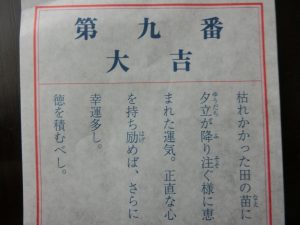 第九番
大吉
枯れかかった田の苗に
夕立が降り注ぐ様に恵
まれた運気。正直な心
を持ち励めば、さらに
幸運多し。
徳を積むべし。